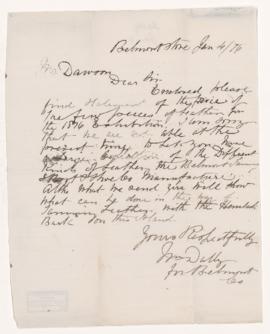 Belmont Store Jan 4/76
Dawson
Dear Sir
Enclosed please
find Statement of the price of
the five pieces of leather for
the 1876 Exhibition, I am sorry
that we are not able at the
present time, to let you have
of the Different
Kinds of leather the Belmont
Manufacture
What we send you will show
what can be done in the
Tanning Leather, with the Hemlock
Bark on this Island
Yours Respectfully
for Belmont
Co